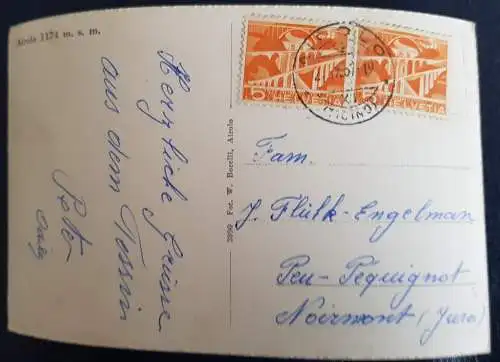 Airolo 1174 m. s. m.
Herzliche Grüsse
aus dem Tessin
Peter
3899 Fot. W. Borelli, Airolo
5 HELVETIA
HELVETIA
Fam.
J. Flükk-Engelman
Peu-Pequignot
Noirmont (Jura)